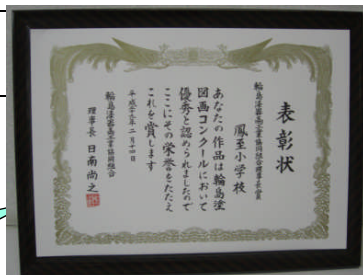 表彰状
輪島漆器商工業協同組合理事長賞
鳳至小学校
あなたの作品は輪島塗
図画コンクールにおいて
優秀と認められましたので
ここにその栄誉をたたえ
これを賞します
平成十九年二月十四日
輪島漆器商工業協同組合
理事長 日南尚之